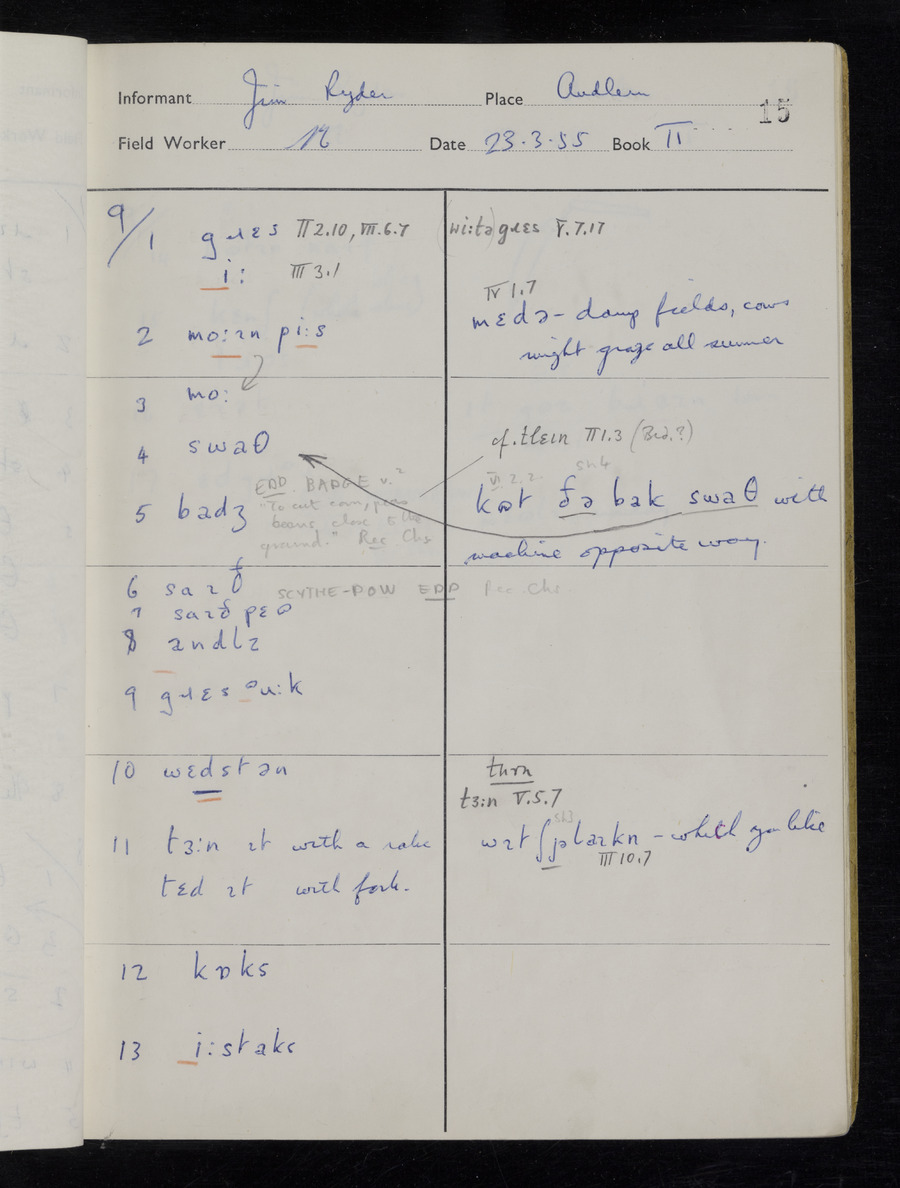 Informant Jim Ryder Place Audlem
15
Field Worker Date 23.3.55 Book II
9/1 gɹɛs II 2.10, VII.6.7
i: III 3.1
2 mo:ɪn pi:s
3 mo:
4 swaθ
5 badʒ
EDD BADGE v.²
"To cut corn, peas
beans close to the
ground." Rec Chs
6 saɪð
7 saɪðpɛʊ
8 andlɪ
SCYTHE-POW EDD Rec. Chs.
9 gɹɛs
10 wɛdstən
11 tɜ:n ɪt with a rake
tɛd ɪt with fork.
12 kɒks
13 i:staks
(wi:tə)gɹɛs V.7.17
IV 1.7
mɛdə - damp fields, cows
might graze all summer
cf. tlɛɪn II 1.3 (Bed.?)
VI.2.2. sh4
kʊt ðə bak swaθ with
machine opposite way.
turn
tɜ:n V.5.7
sh3
wɪt ʃjəlaɪkn - which you like
III 10.7